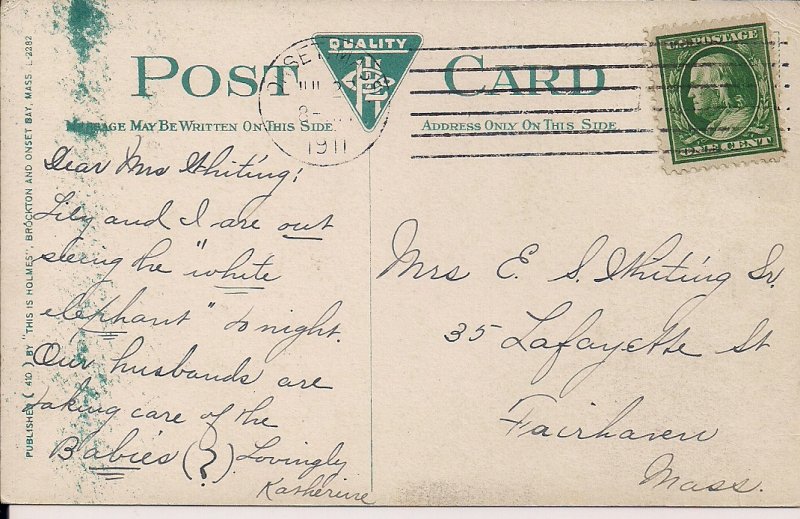 PUBLISHED (410) BY "THIS IS HOLMES", BROCKTON AND ONSET BAY, MASS. L-2282
POST CARD
QUALITY
MESSAGE MAY BE WRITTEN ON THIS SIDE
ADDRESS ONLY ON THIS SIDE
1911
U.S. POSTAGE
ONE CENT
Dear Mrs Whiting;
Lily and I are out
seeing the "white
elephant" to night.
Our husbands are
taking care of the
Babies (?) Lovingly
Katherine
Mrs E. S. Whiting Sr.
35 Lafayette St
Fairhaven
Mass.